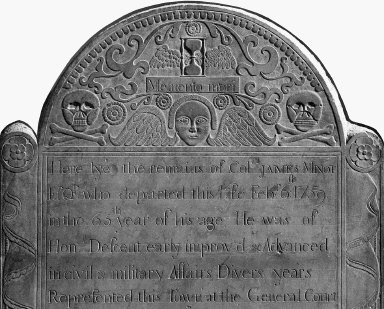 Memento mori
Here lyes the remains of Col. JAMES MINOT
Esq. who departed this life Feb. 6th 1759
in the 65th year of his age. He was of
Hon. Descent, early improv'd & Advanced
in civil & military Affairs Divers years
Represented this Town at the General Court